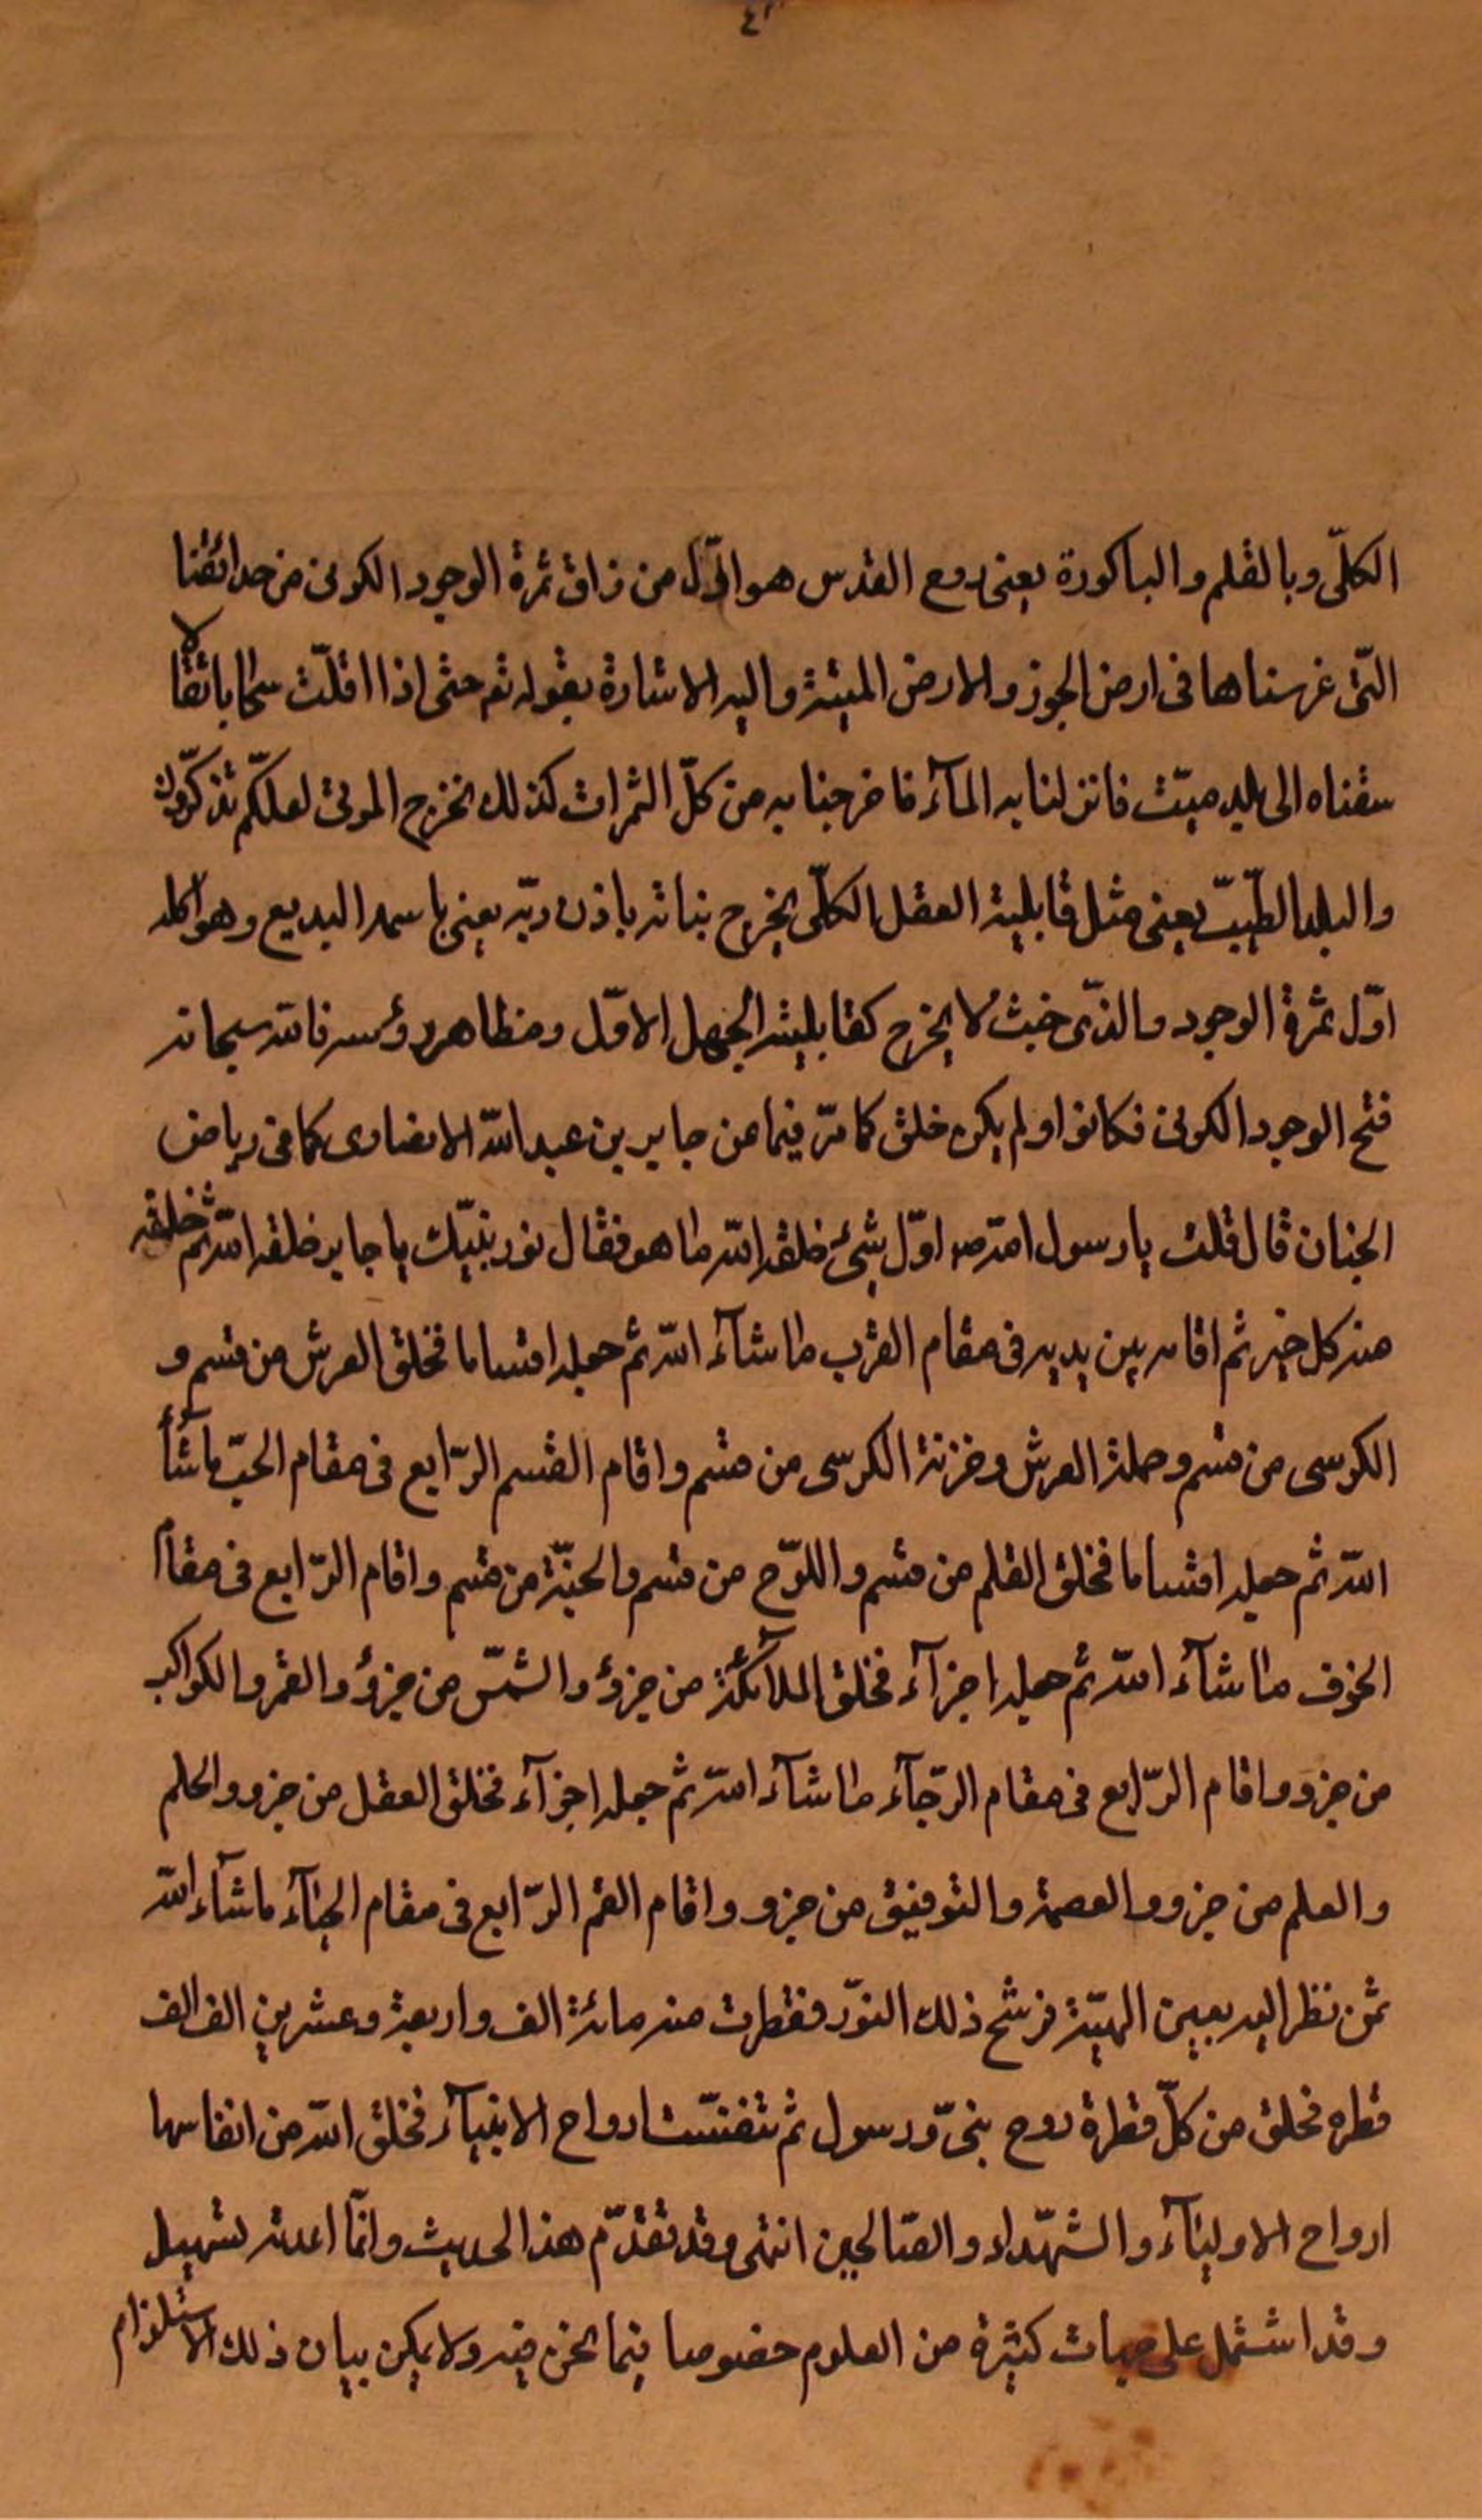 الكلّى وبالقلم والباكورة يعنى روح القدس هو اوّل من ذاق ثمرة الوجود الكونى من حدائقنا
التّى غرسناها فى ارض الجرز والارض الميتة واليه الاشارة بقوله تع حتى اذا اقلّت سحابا ثقالا
سقناه الى بلد ميّت فانزلنا به المآء فاخرجنا به من كلّ الثمرات كذلك نخرج الموتى لعلكّم تذكّرون
والبلد الطّيبّ يعنى مثل قابلية العقل الكلّى يخرج بناته باذن ربّه يعنى باسمه البديع وهو اكله
اوّل ثمرة الوجود والذّى خبث لا يخرج كقابلية الجهل الاوّل ومظاهره ورؤسه فانّه سبحانه
فتح الوجود الكونى فكانوا ولم يكن خلق كما مرّ فيما عن جابر بن عبد اللّه الانصارى كما فى رياض
الجنان قال قلت يا رسول اللّه ص اوّل شئ خلقه اللّه ما هو فقال نور نبيّك يا جابر خلقه اللّه ثم خلق
منه كل خير ثم اقامه بين يديه فى مقام القرب ما شآء اللّه ثم جعله اقساما فخلق العرش من قسم و
الكرسى من قسم وحملة العرش وخزنة الكرسى من قسم واقام القسم الرّابع فى مقام الحبّ ما شآء
اللّه ثم جعله اقساما فخلق القلم من قسم واللوّح من قسم والجنّة من قسم واقام الرّابع فى مقام
الخوف ما شآء اللّه ثم جعله اجزآء فخلق الملائكة من جزؤ والشمّس من جزؤ والقمر والكواكب
من جزو واقام الرّابع فى مقام الرّجآء ما شآء اللّه ثم جعله اجزآء فخلق العقل من جزو والحلم
والعلم من جزو والعصمة والتوفيق من جزو واقام القم الرّابع فى مقام الحيآء ما شآء اللّه
ثمّ نظر اليه بعين الهيبّة فرشح ذلك النوّر فقطرت منه مائة الف واربعة وعشرين الف الف
قطره فخلق من كلّ قطرة روح نبىّ ورسول ثم تنفسّت ارواح الانبيآء فخلق اللّه من انفاسها
ارواح الاوليآء والشهّداء والصّالحين انتهى وقد تقدّم هذا الحديث وانمّا اعدته لتسهيل
وقد اشتمل على جهات كثيرة من العلوم خصوصا فيما نحن فيه ولا يمكن بيان ذلك لاستلزام